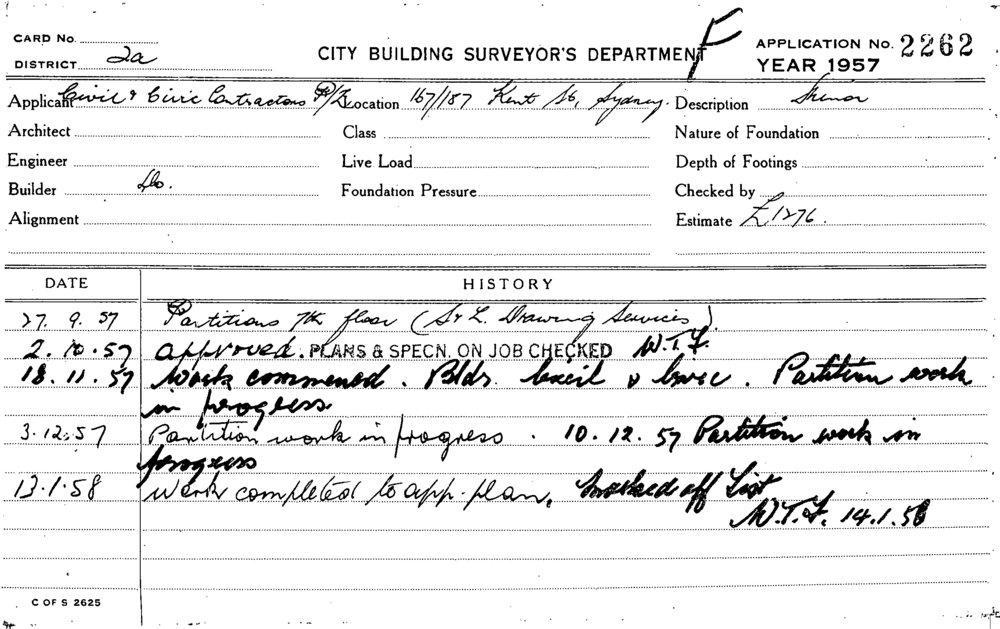 CARD No.
DISTRICT 2a
CITY BUILDING SURVEYOR'S DEPARTMENT F
APPLICATION No. 2262
YEAR 1957
Applicant Civil & Civic Contractors P/L Location 167/187 Kent St, Sydney. Description
Architect Class Nature of Foundation
Engineer Live Load Depth of Footings
Builder Do. Foundation Pressure Checked by
Alignment Estimate £1276.
DATE HISTORY
27. 9. 57 Partitions 7th floor ( Drawing Services )
2. 10. 57 approved. PLANS & SPECN. ON JOB CHECKED W.T.F.
18. 11. 57 Work commenced. Blds. Civil & Civic. Partition work
in progress
3.12.57 Partition work in progress. 10. 12. 57 Partition work in
progress
13.1.58 Work completed to app. plan. Marked off List
W.T.F. 14.1.58
C OF S 2625